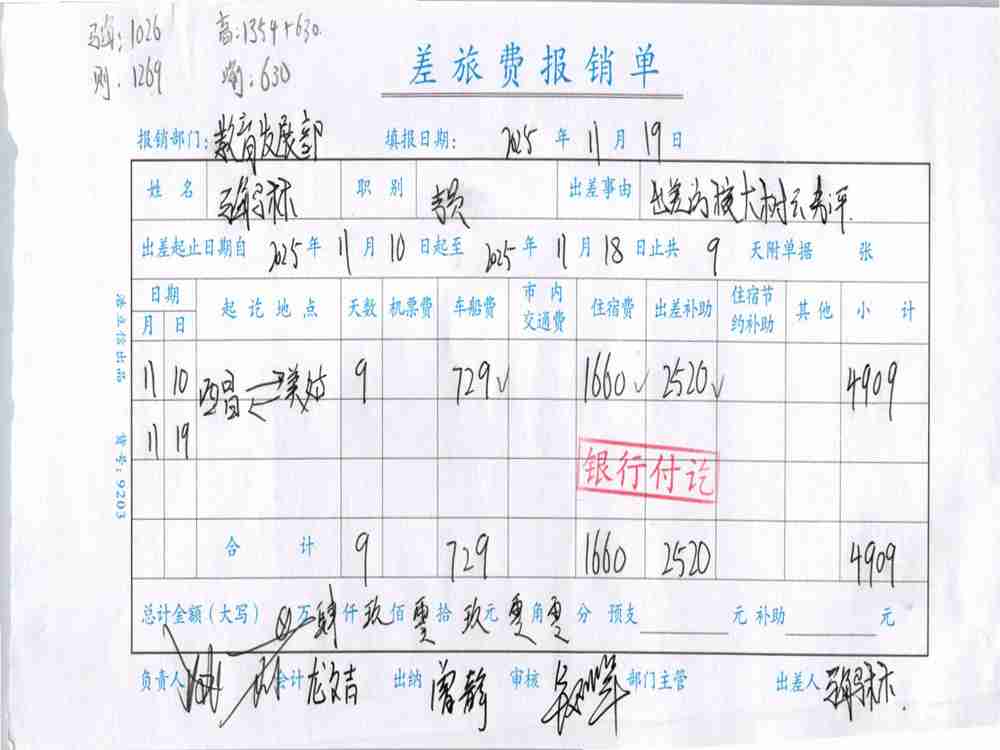 1026 高:1354+630.
1269 :630
差旅费报销单
报销部门: 教育发展部 填报日期: 2025 年 11 月 19 日
姓名 职别 专员 出差事由
出差起止日期自 2025 年 11 月 10 日起至 2025 年 11 月 18 日止共 9 天附单据 张
日期 起讫地点 天数 机票费 车船费 市内交通费 住宿费 出差补助 住宿节约补助 其他 小计
月 日
11 10 西昌 美姑 9 729 1660 2520 4909
11 19
银行付讫
合计 9 729 1660 2520 4909
总计金额(大写) 万 肆 仟 玖 佰 零 拾 玖 元 零 角 零 分 预支 元 补助 元
负责人 会计 龙文吉 出纳 曾静 审核 部门主管 出差人
货号:9203